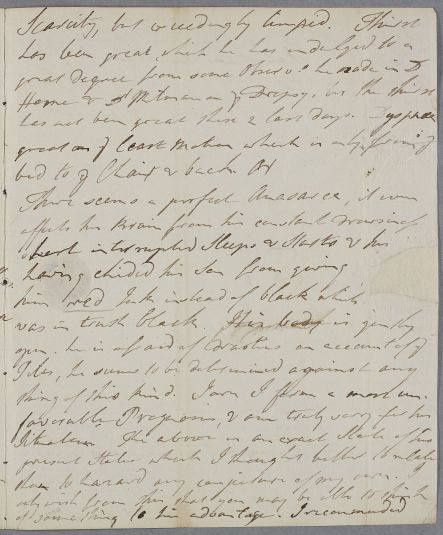 Scarcity, but exceedingly limpid. Thirst
has been great, which he has indulged to a
great degree from some Observns he made in Dr
Home & Dr Milman on ye Dropsy, but the thirst
has not been great these 2 last days. Dyspnea
great on ye least Motion which is only from ye
bed to ye Chair & back.
There seems a perfect Anasarca, it even
affects his Brain from his constant Drowsiness
short interrupted Sleeps & Starts & his
having chided his Son from giving
him red Ink instead of black which
was in truth black. His body is gently
open. he is afraid of Drastics on account of ye
Piles, he seems to be determined against any
thing of this kind. I own I form a most un-
favorable Prognosis, & am truly sorry for his
Situation. The above is an exact State of his
present State which I thought better to relate
than to hazard any conjecture of my own. I
only wish from this that you may be able to think
of something to his advantage. I recommended